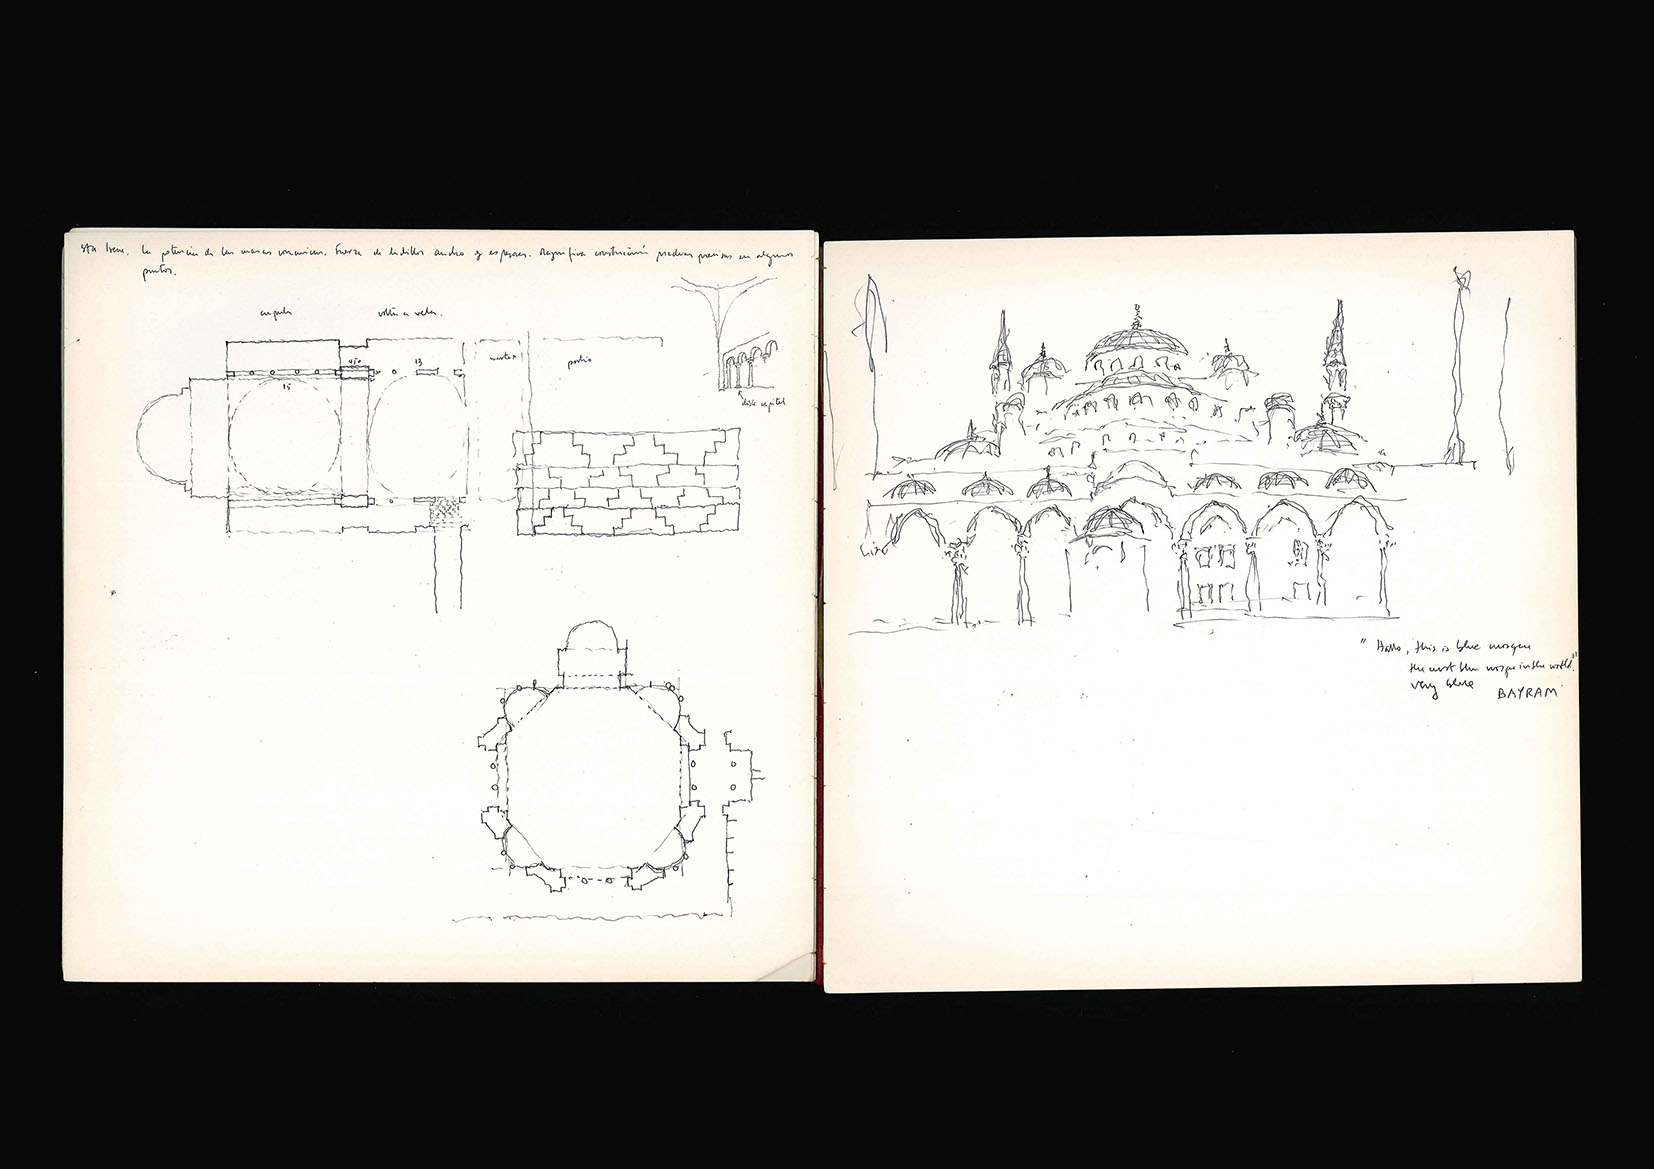 Sta Irene. La potencia de las masas murarias. Fuerza de ladrillos ancho y espesores. Magnífica construcción piedras precisas en algunos
puntos.
cupula
volta a vela.
450
13
15
nartex
patio
doble capitel
"Hallo, this is blue mosque
the most blue mosque in the world."
very blue
BAYRAM